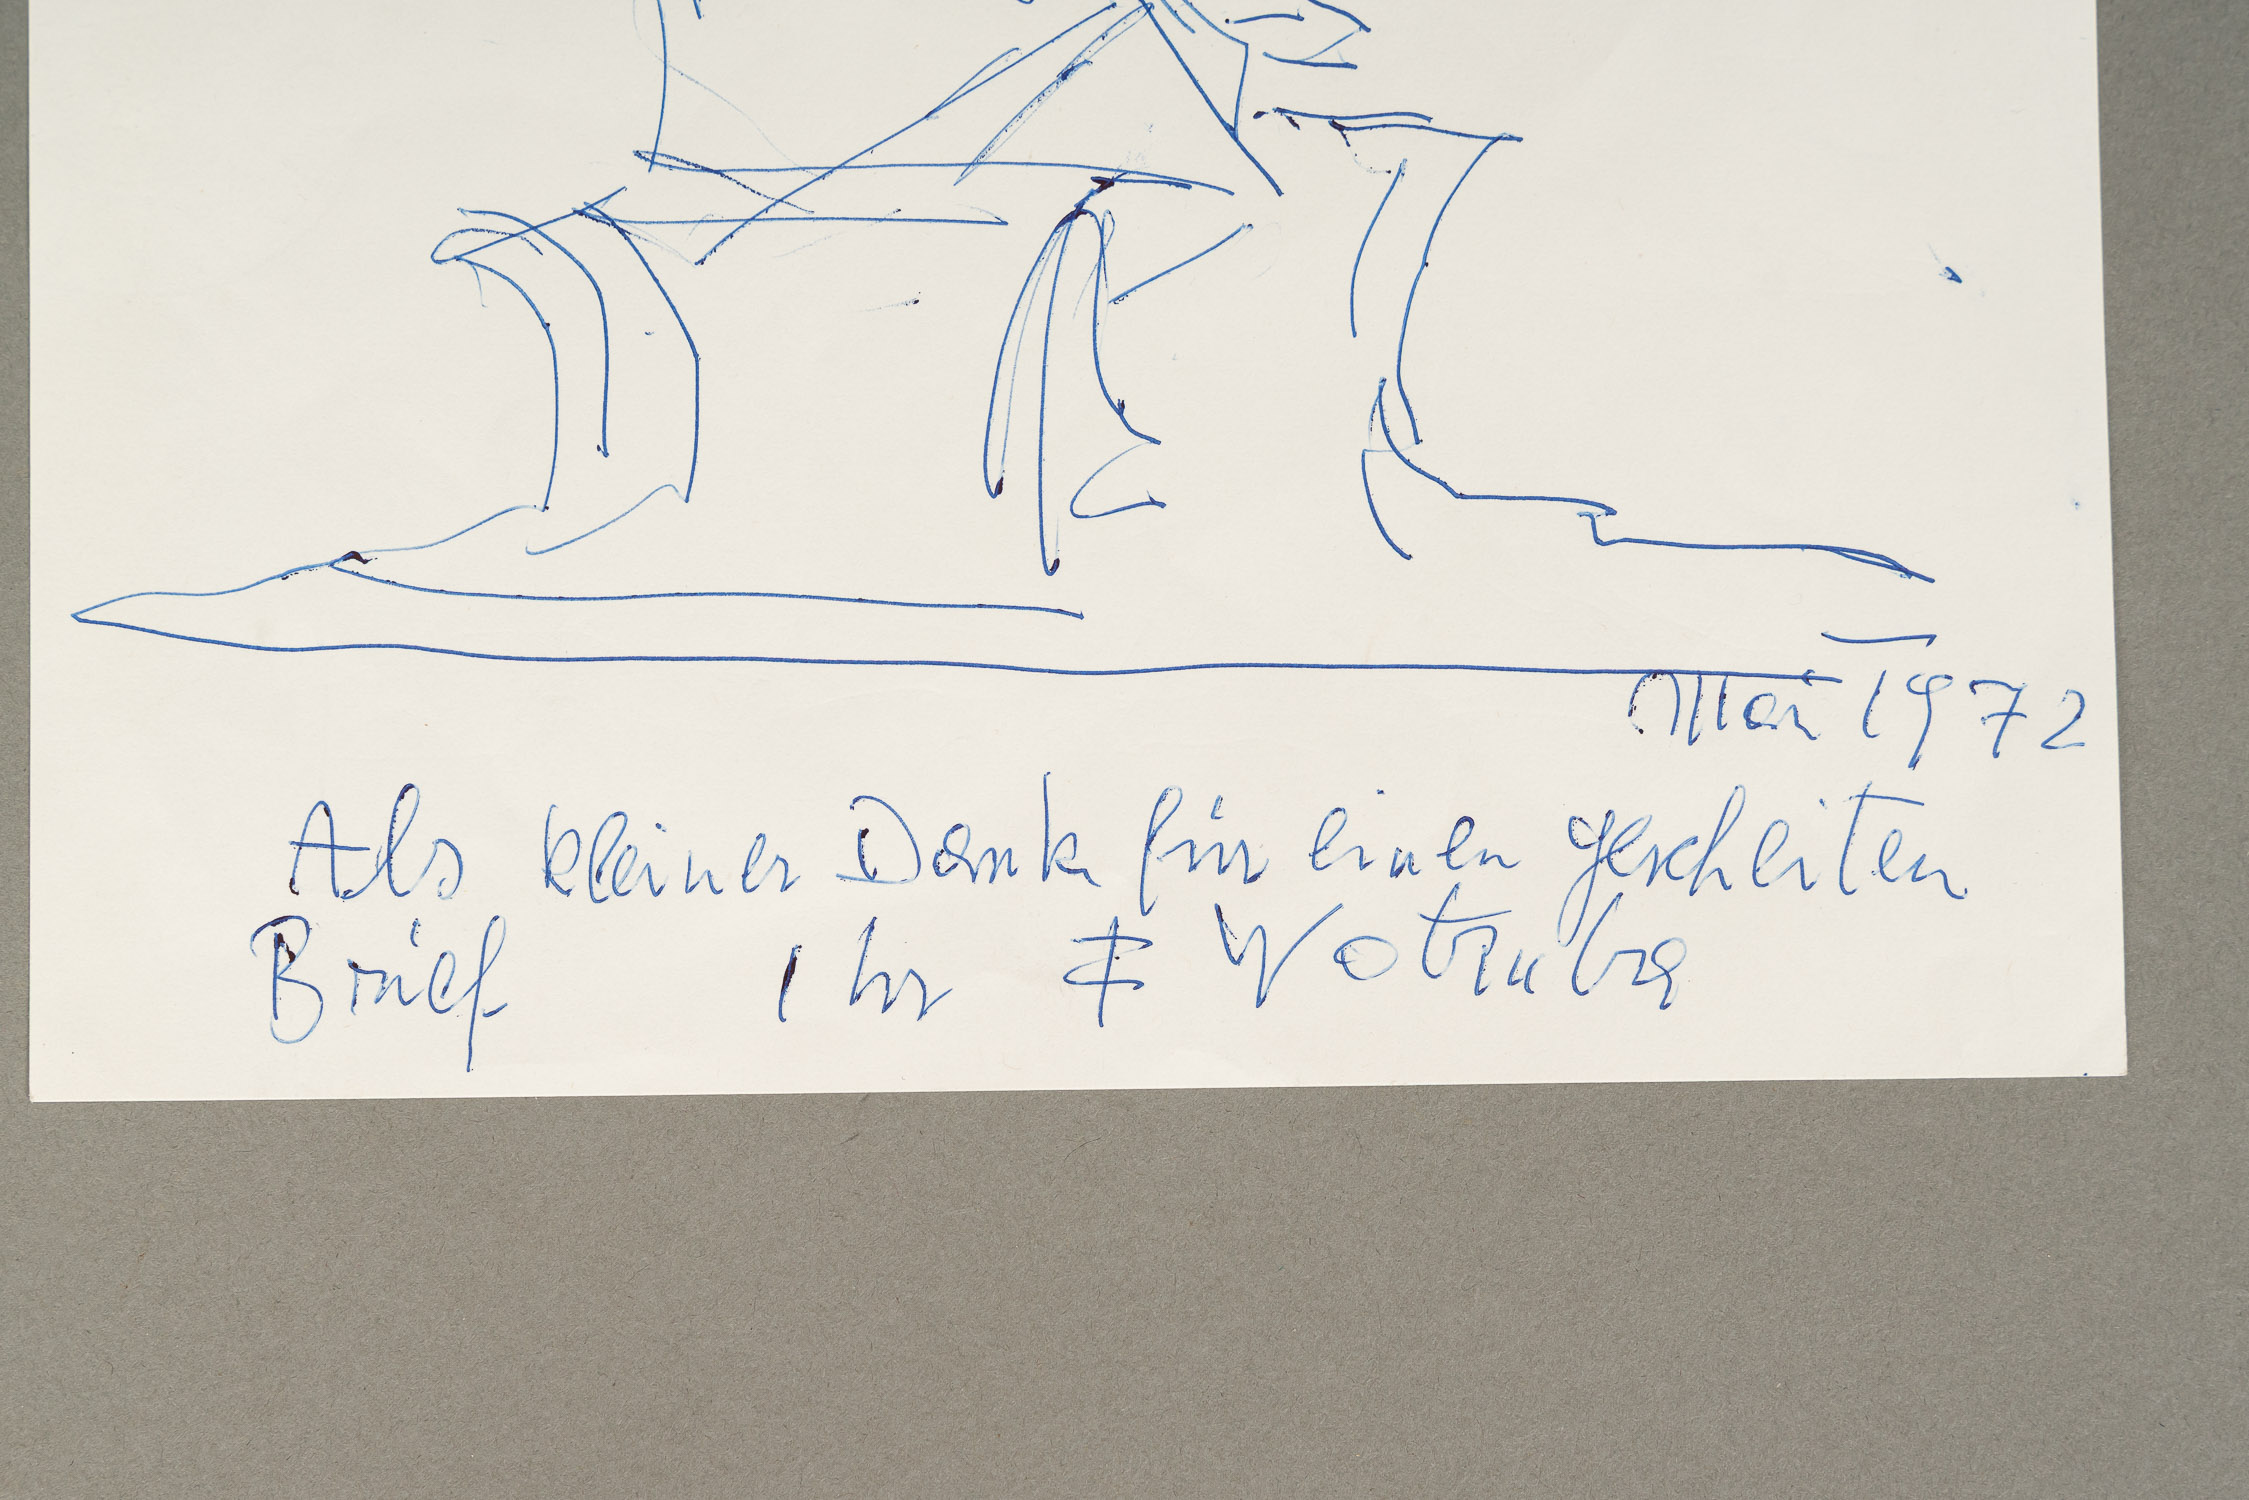 Mai 1972
Als kleiner Dank für einen gescheiten
Brief Ihr F Wotruba